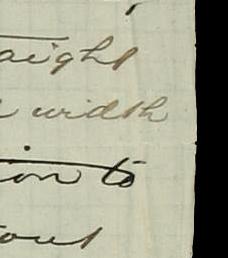 aight
width
ion to
ous